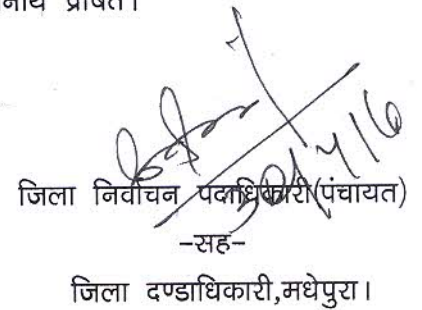 प्रेषित।
जिला निर्वाचन पदाधिकारी(पंचायत)
-सह-
जिला दण्डाधिकारी,मधेपुरा।